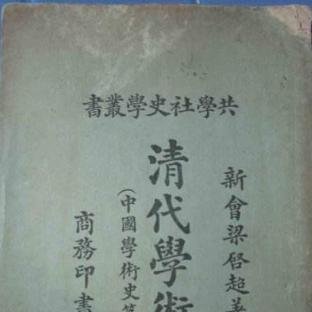 共學社史學叢書
新會梁啓超著
清代學術
(中國學術史第
商務印書